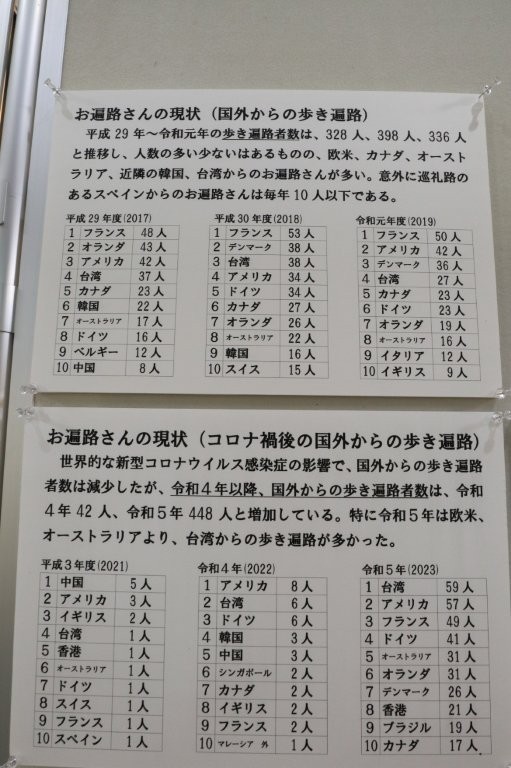 お遍路さんの現状（国外からの歩き遍路）
平成29年～令和元年の歩き遍路者数は、328人、398人、336人
と推移し、人数の多い少ないはあるものの、欧米、カナダ、オースト
ラリア、近隣の韓国、台湾からのお遍路さんが多い。意外に巡礼路の
あるスペインからのお遍路さんは毎年10人以下である。
平成29年度(2017)
1 フランス 48人
2 オランダ 43人
3 アメリカ 42人
4 台湾 37人
5 カナダ 23人
6 韓国 22人
7 オーストラリア 17人
8 ドイツ 16人
9 ベルギー 12人
10 中国 8人
平成30年度(2018)
1 フランス 53人
2 デンマーク 38人
3 台湾 38人
4 アメリカ 34人
5 ドイツ 34人
6 カナダ 27人
7 オランダ 26人
8 オーストラリア 22人
9 韓国 16人
10 スイス 15人
令和元年度(2019)
1 フランス 50人
2 アメリカ 42人
3 デンマーク 36人
4 台湾 27人
5 カナダ 23人
6 ドイツ 23人
7 オランダ 19人
8 オーストラリア 16人
9 イタリア 12人
10 イギリス 9人
お遍路さんの現状（コロナ禍後の国外からの歩き遍路）
世界的な新型コロナウイルス感染症の影響で、国外からの歩き遍路
者数は減少したが、令和4年以降、国外からの歩き遍路者数は、令和
4年42人、令和5年448人と増加している。特に令和5年は欧米、
オーストラリアより、台湾からの歩き遍路が多かった。
平成3年度(2021)
1 中国 5人
2 アメリカ 3人
3 イギリス 2人
4 台湾 1人
5 香港 1人
6 オーストラリア 1人
7 ドイツ 1人
8 スイス 1人
9 フランス 1人
10 スペイン 1人
令和4年(2022)
1 アメリカ 8人
2 台湾 6人
3 ドイツ 6人
4 韓国 3人
5 中国 3人
6 シンガポール 2人
7 カナダ 2人
8 イギリス 2人
9 フランス 2人
10 マレーシア 外 1人
令和5年(2023)
1 台湾 59人
2 アメリカ 57人
3 フランス 49人
4 ドイツ 41人
5 オーストラリア 31人
6 オランダ 31人
7 デンマーク 26人
8 香港 21人
9 ブラジル 19人
10 カナダ 17人